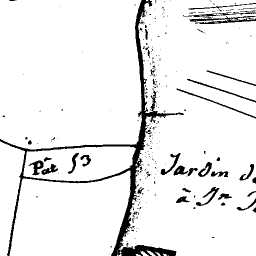 Pat 53
Jardin de
à Jn